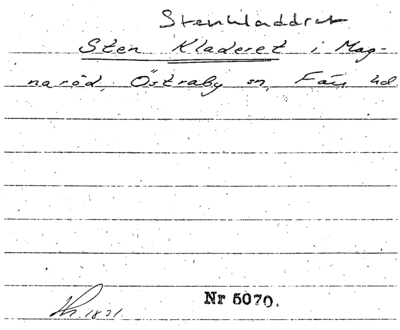 Stenkladdret
Sten Kladeret i Mag-
naröd, Östraby sn, Färs hd
Nr 5070.
1821.